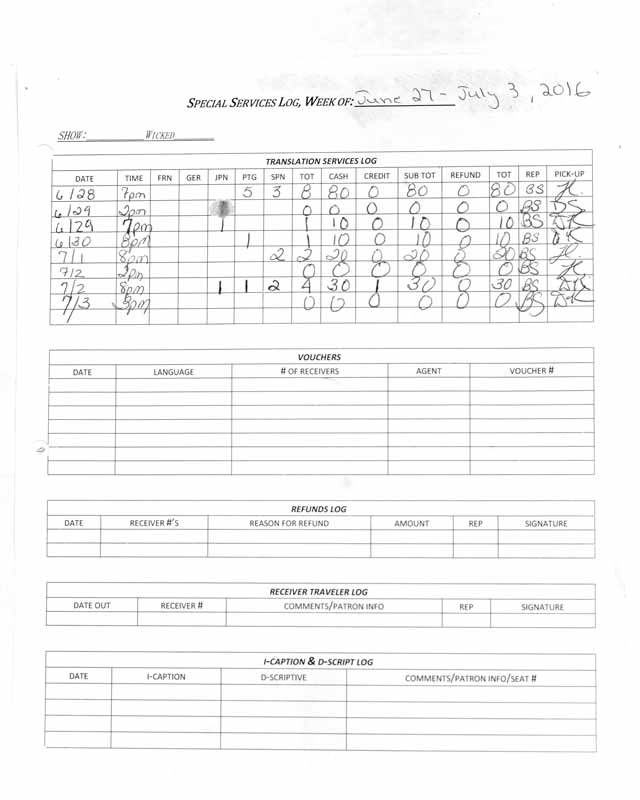 SPECIAL SERVICES LOG, WEEK OF: June 27 - July 3, 2016
SHOW: WICKED
TRANSLATION SERVICES LOG
DATE TIME FRN GER JPN PTG SPN TOT CASH CREDIT SUB TOT REFUND TOT REP PICK-UP
6/28 7pm 5 3 8 80 0 80 0 80 BS
6/29 2pm 0 0 0 0 0 0 BS
6/29 7pm 1 1 10 0 10 0 10 BS DK
6/30 8pm 1 1 10 0 10 0 10 BS DK
7/1 8pm 2 2 20 0 20 0 20 BS
7/2 2pm 0 0 0 0 0 0 BS
7/2 8pm 1 1 2 4 30 1 30 0 30 BS DK
7/3 3pm 0 0 0 0 0 0 BS DK
VOUCHERS
DATE LANGUAGE # OF RECEIVERS AGENT VOUCHER #
REFUNDS LOG
DATE RECEIVER #'S REASON FOR REFUND AMOUNT REP SIGNATURE
RECEIVER TRAVELER LOG
DATE OUT RECEIVER # COMMENTS/PATRON INFO REP SIGNATURE
I-CAPTION & D-SCRIPT LOG
DATE I-CAPTION D-SCRIPTIVE COMMENTS/PATRON INFO/SEAT #